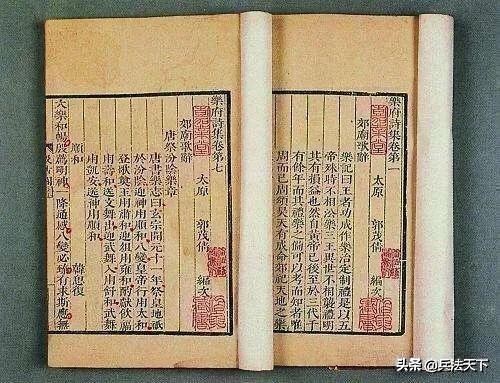 樂府詩集卷第一
太原 郭茂倩 編次
郊廟歌辭
樂記曰王者功成作樂治定制禮是以五
帝殊時不相沿樂三王異世不相襲禮明
其有損益也然自黃帝已後至於三代千
有餘年而其禮樂之備可以考而知者唯
周而已周頌昊天有成命郊祀天地之樂
樂府詩集卷第七
太原 郭茂倩 編次
郊廟歌辭
唐祭汾陰樂章
唐書樂志曰玄宗開元十一年祭皇地祇
於汾陰迎神用順和八變皇帝行用太和
登歌奠玉用肅和迎俎用雍和酌獻飲福
用壽和送文舞出迎武舞入用舒和武舞
用凱安送神用順和
順和 韓思復
大樂和暢殷薦明神一降通感八變必臻有求斯應無
头条 @兵法天下